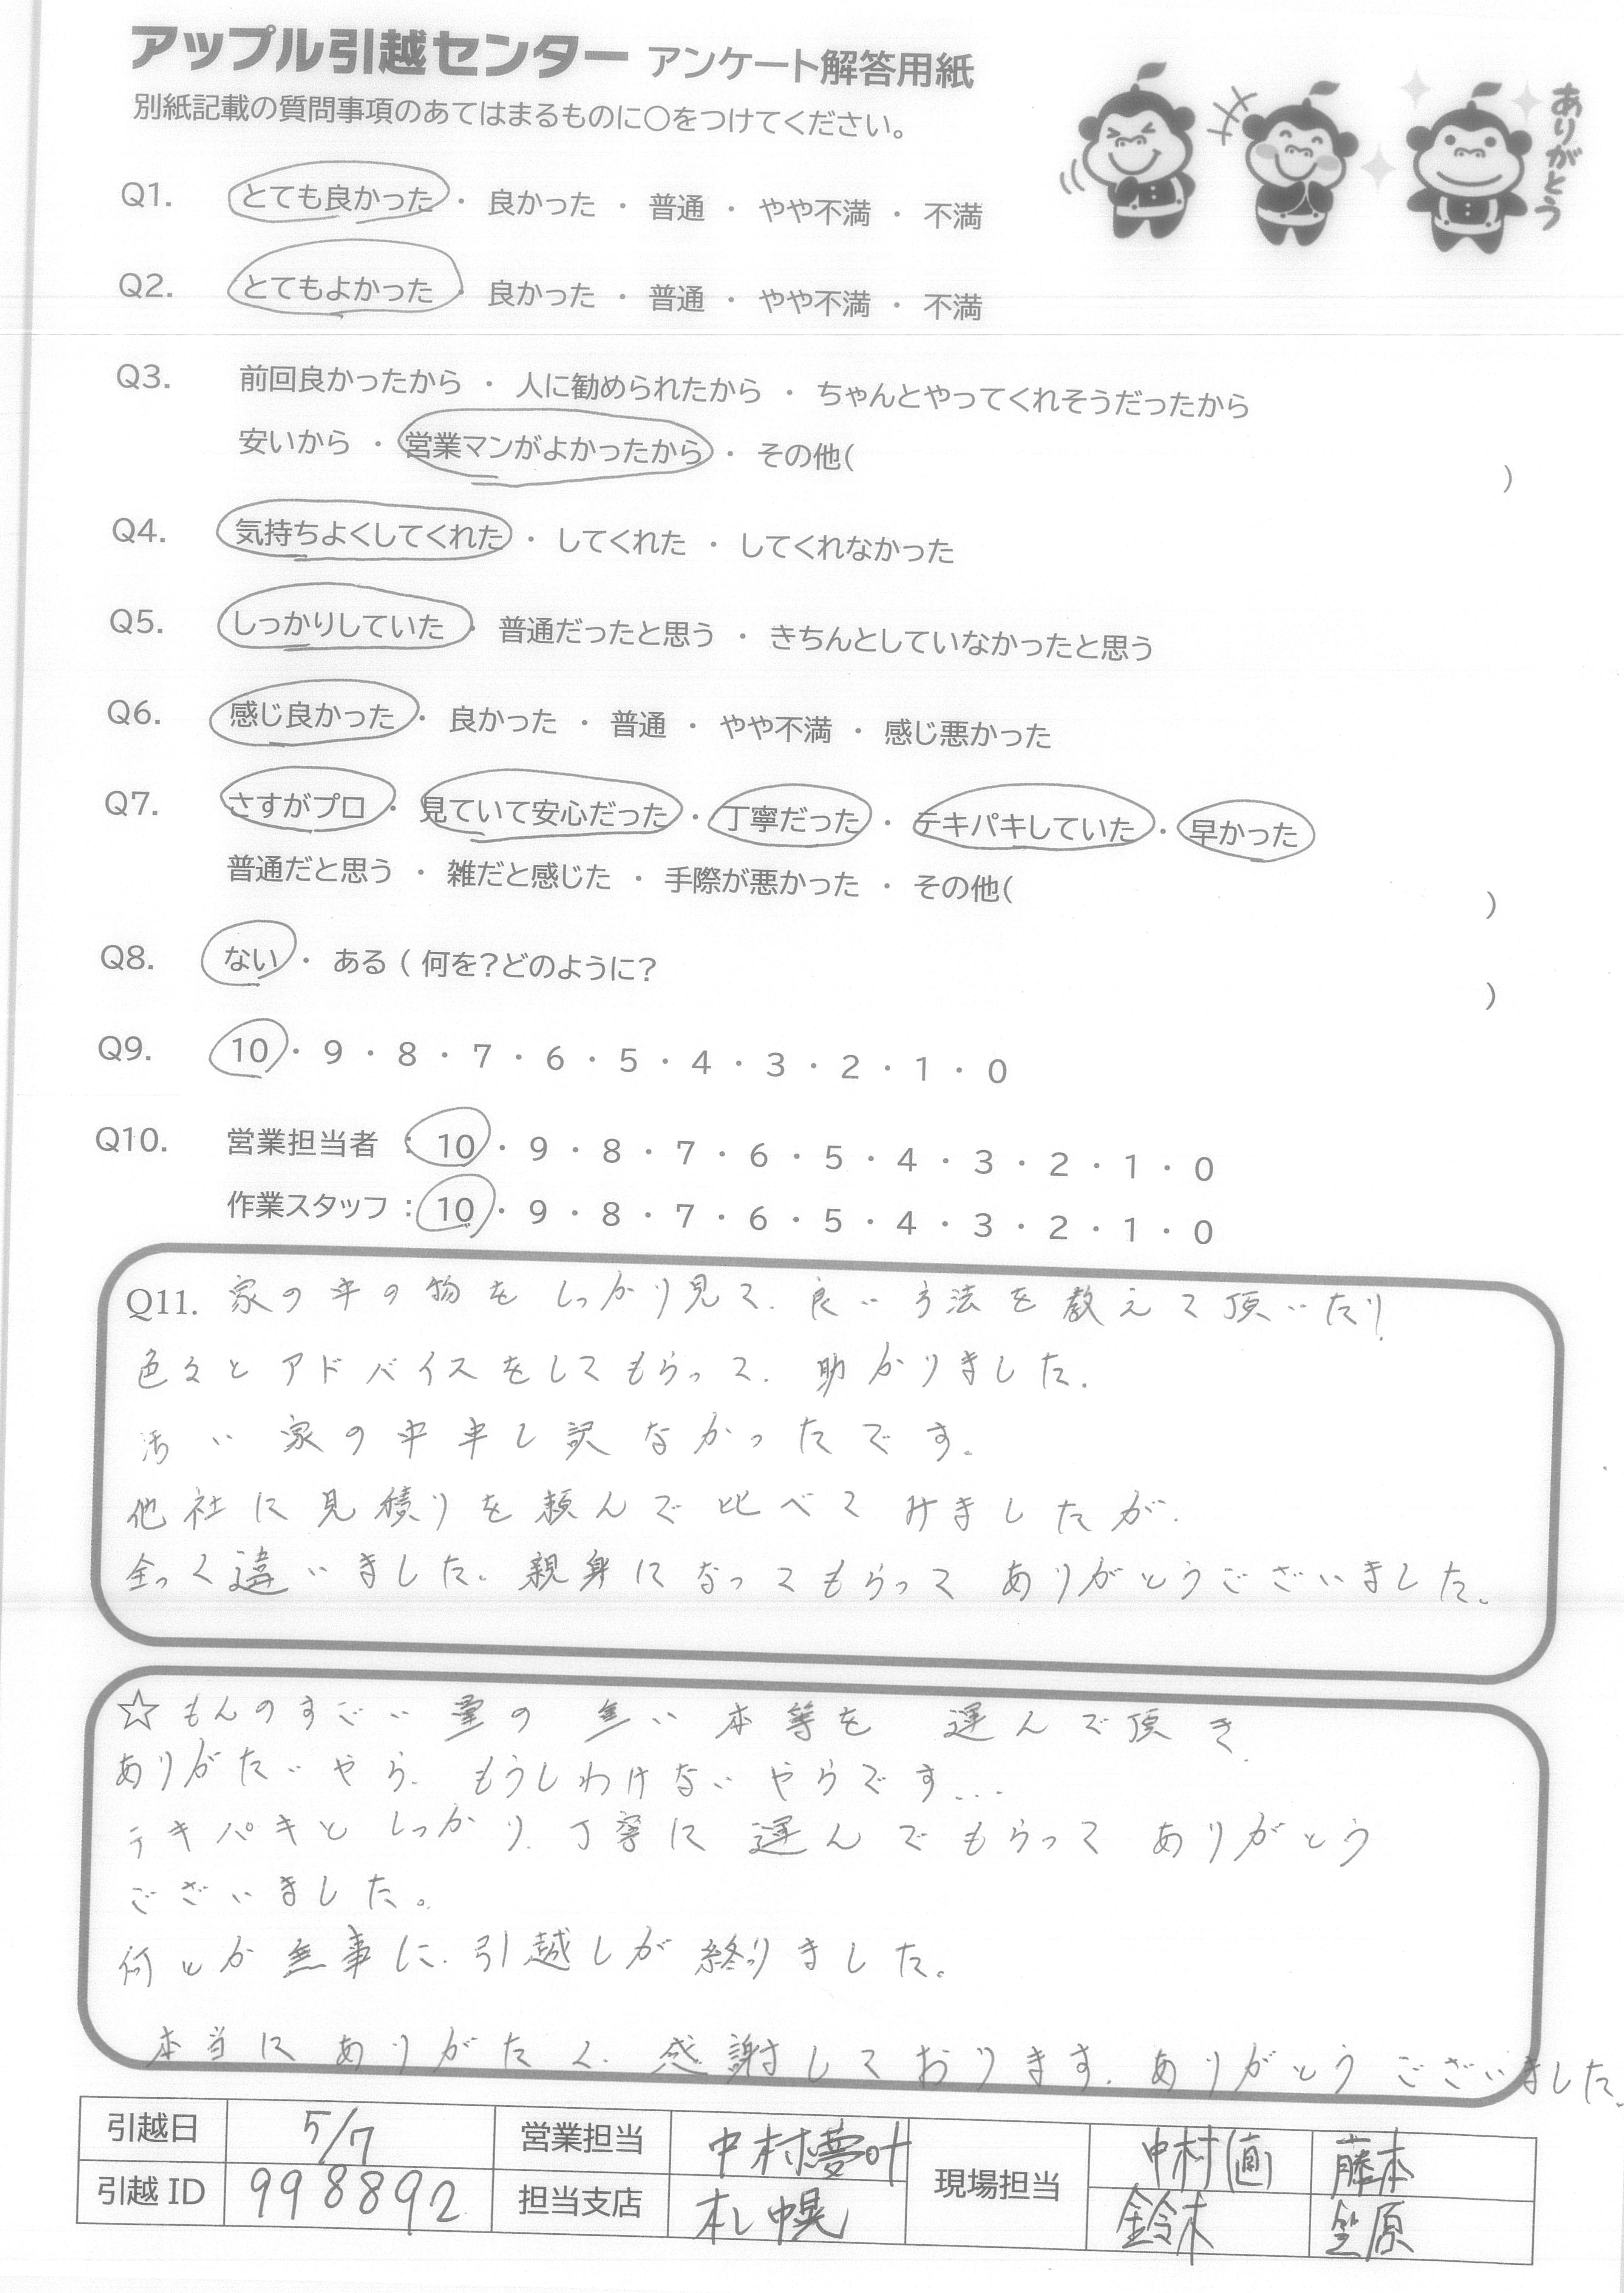 アップル引越センター アンケート解答用紙
別紙記載の質問事項のあてはまるものに〇をつけてください。
ありがとう
Q1. とても良かった ・ 良かった ・ 普通 ・ やや不満 ・ 不満
Q2. とてもよかった ・ 良かった ・ 普通 ・ やや不満 ・ 不満
Q3. 前回良かったから ・ 人に勧められたから ・ ちゃんとやってくれそうだったから
安いから ・ 営業マンがよかったから ・ その他( )
Q4. 気持ちよくしてくれた ・ してくれた ・ してくれなかった
Q5. しっかりしていた ・ 普通だったと思う ・ きちんとしていなかったと思う
Q6. 感じ良かった ・ 良かった ・ 普通 ・ やや不満 ・ 感じ悪かった
Q7. さすがプロ ・ 見ていて安心だった ・ 丁寧だった ・ テキパキしていた ・ 早かった
普通だと思う ・ 雑だと感じた ・ 手際が悪かった ・ その他( )
Q8. ない ・ ある ( 何を?どのように? )
Q9. 10 ・ 9 ・ 8 ・ 7 ・ 6 ・ 5 ・ 4 ・ 3 ・ 2 ・ 1 ・ 0
Q10. 営業担当者 : 10 ・ 9 ・ 8 ・ 7 ・ 6 ・ 5 ・ 4 ・ 3 ・ 2 ・ 1 ・ 0
作業スタッフ : 10 ・ 9 ・ 8 ・ 7 ・ 6 ・ 5 ・ 4 ・ 3 ・ 2 ・ 1 ・ 0
Q11. 家の中の物をしっかり見て、良い方法を教えて頂いたり
色々とアドバイスをしてもらって、助かりました。
汚い家の中申し訳なかったです。
他社に見積りを頼んで比べてみましたが、
全っく違いました。親身になってもらってありがとうございました。
☆もんのすごい量の重い本等を運んで頂き、
ありがたいやら、もうしわけないやらです...
テキパキとしっかり、丁寧に運んでもらってありがとう
ございました。
何とか無事に、引越しが終りました。
本当にありがたく、感謝しております。ありがとうございました。
引越日 5/7 営業担当 中村夢叶 現場担当 中村(直) 藤本
引越ID 998892 担当支店 札幌 鈴木 笠原